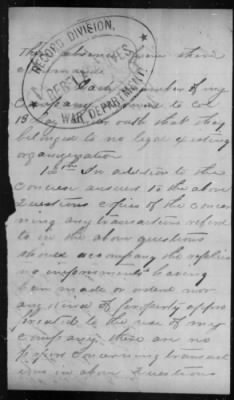 RECORD DIVISION,
WAR DEPARTMENT.
command
Each member of my
company
oath that they
belonged to no legal existing
organization
12th In addition to the
concise answers to the above
Questions copies of the
any transactions referd
to in the above questions
should accompany the replies
no imprisonments having
been made or orderd nor
any kind of property appro
priated to the use of my
company there are no
papers concerning transact
ions in above Questions